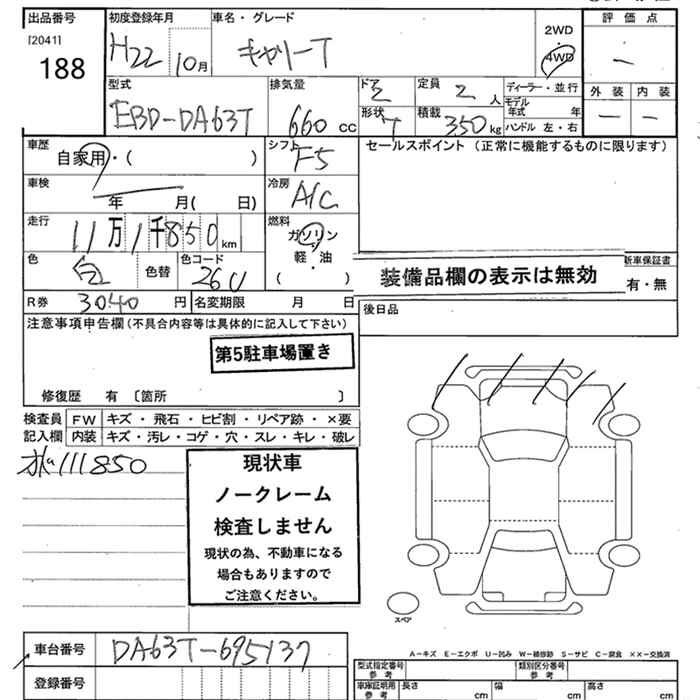 出品番号 初度登録年月 車名・グレード 2WD 評価点
[2041] H22 10月 キャリーT 4WD ー
188
型式 排気量 ドア 定員 ディーラー・並行 外装 内装
EBD-DA63T 660cc 2 2人 モデル年式 年 ー ー
形状 T 積載 350kg ハンドル 左・右
車歴 シフト セールスポイント(正常に機能するものに限ります)
自家用・( ) F5
車検 冷房
年 月( 日) A/C
走行 燃料
11万1千850km ガソリン
軽・油
( )
色 色替 色コード 装備品欄の表示は無効 新車保証書
白 26U 有・無
R券 3040円 名変期限 月 日 後日品
注意事項申告欄(不具合内容等は具体的に記入して下さい)
第5駐車場置き
修復歴 有 〔箇所 〕
検査員 FW キズ・飛石・ヒビ割・リペア跡・×要
記入欄 内装 キズ・汚レ・コゲ・穴・スレ・キレ・破レ
111850
現状車
ノークレーム
検査しません
現状の為、不動車になる
場合もありますので
ご注意ください。
スペア
A-キズ E-エクボ U-凹み W-補修跡 S-サビ C-腐食 ××-交換済
車台番号 DA63T-695137
登録番号
型式指定番号 参考 類別区分番号 参考
車庫証明用 参考 長さ cm 幅 cm 高さ cm